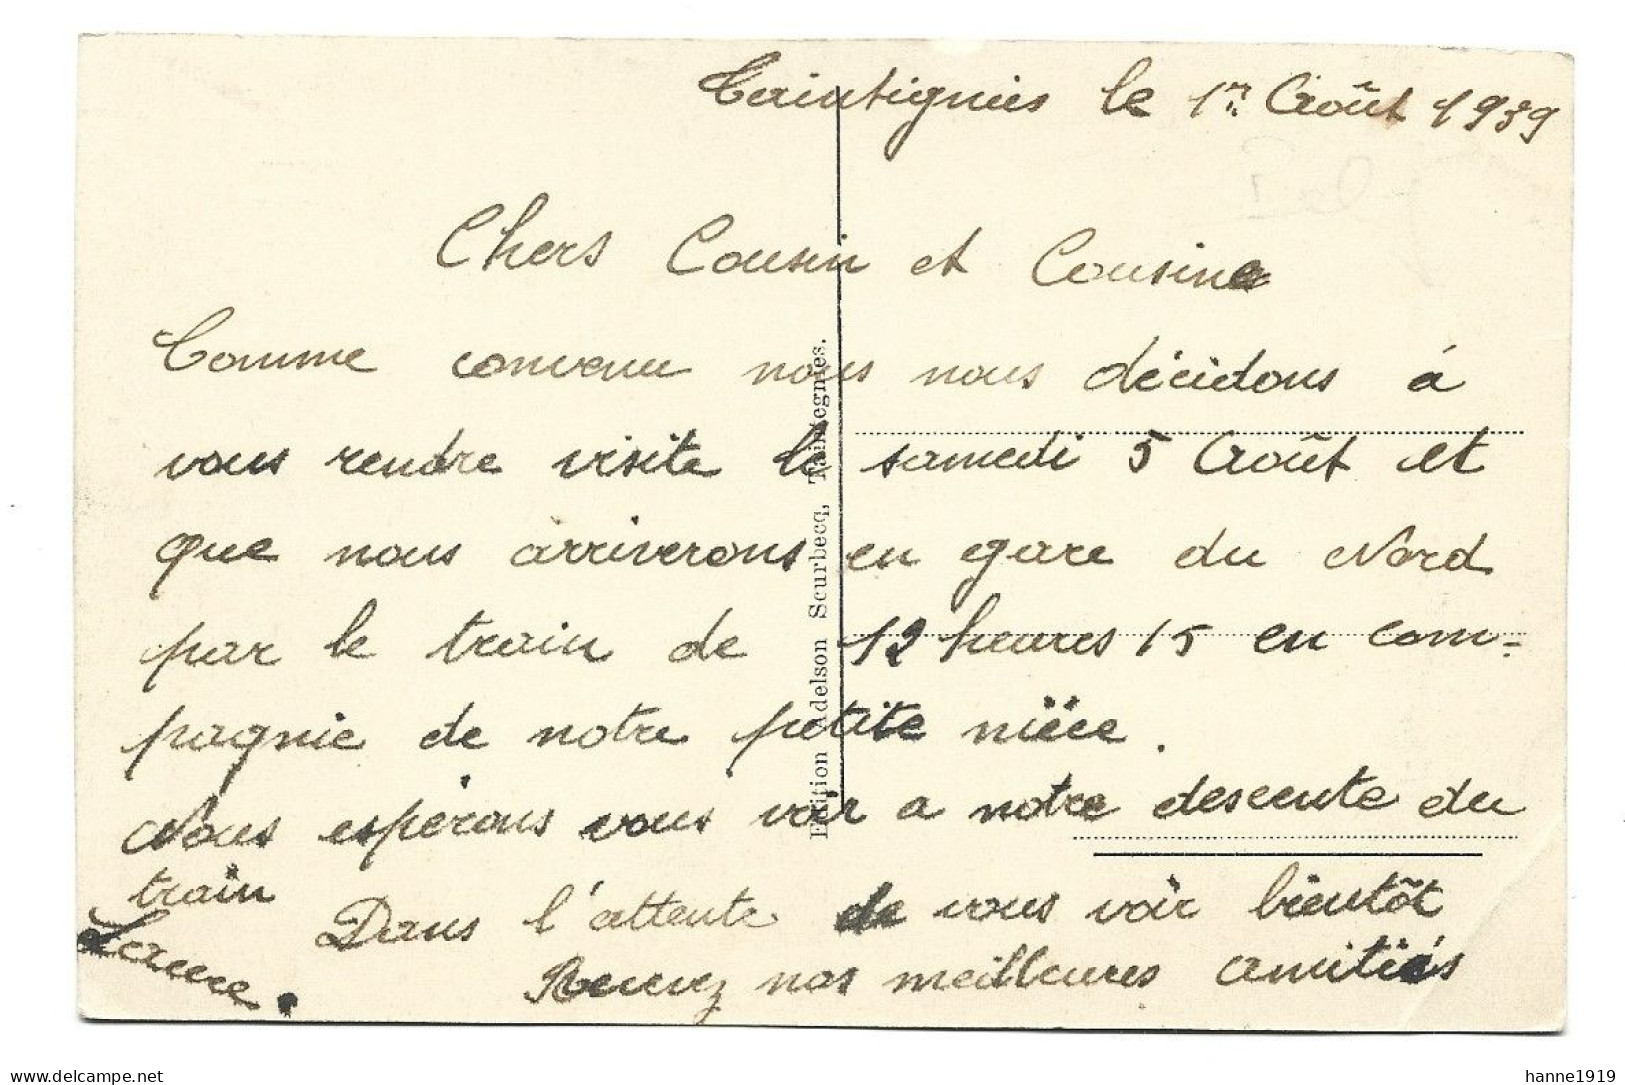 Taintignies le 1er Août 1939
Chers Cousin et Cousine
Comme convenu nous nous décidons à
vous rendre visite le samedi 5 Août et
que nous arriverons en gare du Nord
par le train de 12 heures 15 en com-
pagnie de notre petite nièce.
Nous espérons vous voir a notre descente du
train
Dans l'attente de vous voir bientôt
Recevez nos meilleures amitiés
Edition Adelson Scurbecq, Taintegnies.
delcampe.net
hanne1919